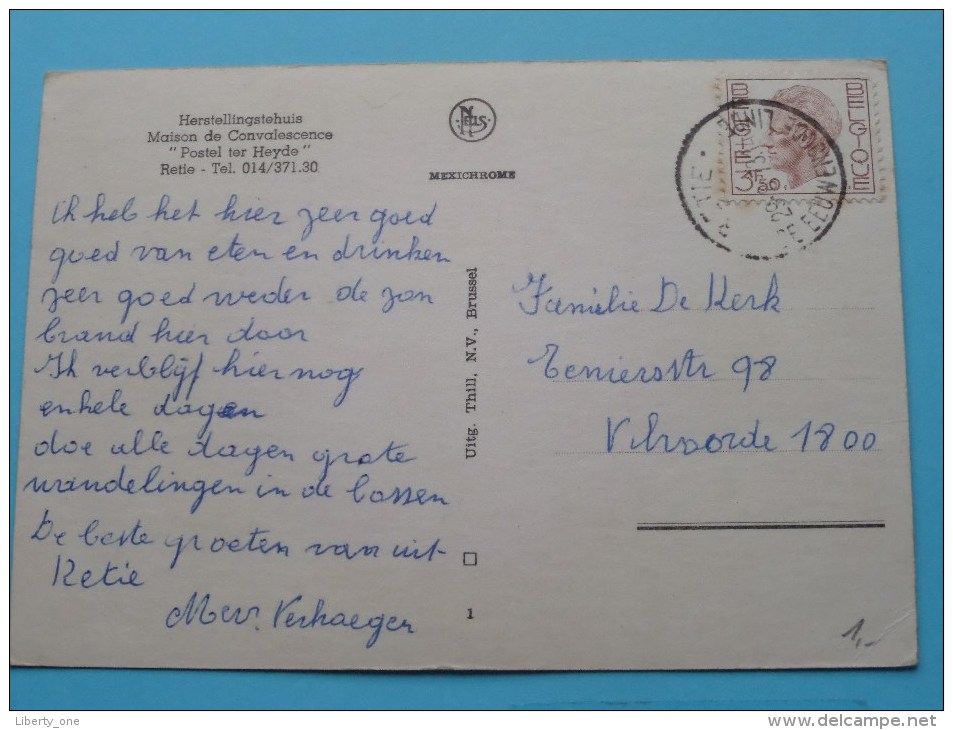 Herstellingstehuis
Maison de Convalescence
"Postel ter Heyde"
Retie - Tel. 014/371.30
NELS
MEXICHROME
BELGIQUE
BELGIE
3F50
RETIE
ik heb het hier zeer goed
goed van eten en drinken
zeer goed weder de zon
brand hier door
Ik verblijf hier nog
enkele dagen
doe alle dagen grote
wandelingen in de bossen
De beste groeten van uit
Retie
Mevr. Verhaegen
Uitg. Thill, N.V., Brussel
1
Familie De Kerk
Teniersstr 98
Vilvoorde 1800
1,-
Liberty_one
http://www.delcampe.net